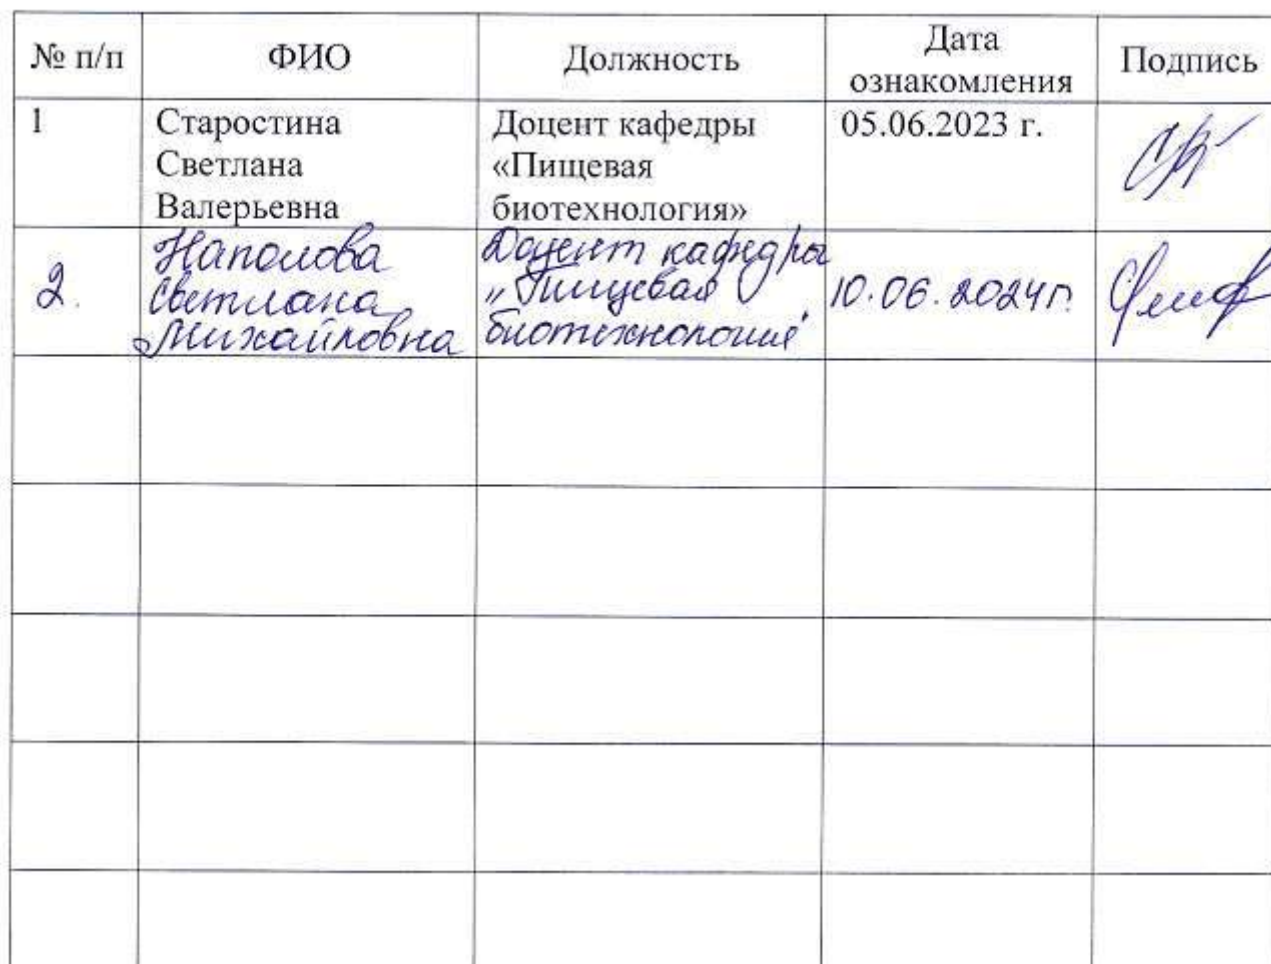 № п/п
ФИО
Должность
Дата
ознакомления
Подпись
1
Старостина
Светлана
Валерьевна
Доцент кафедры
«Пищевая
биотехнология»
05.06.2023 г.
2.
Наполова
Светлана
Михайловна
Доцент кафедры
"Пищевая
биотехнология"
10.06.2024г.